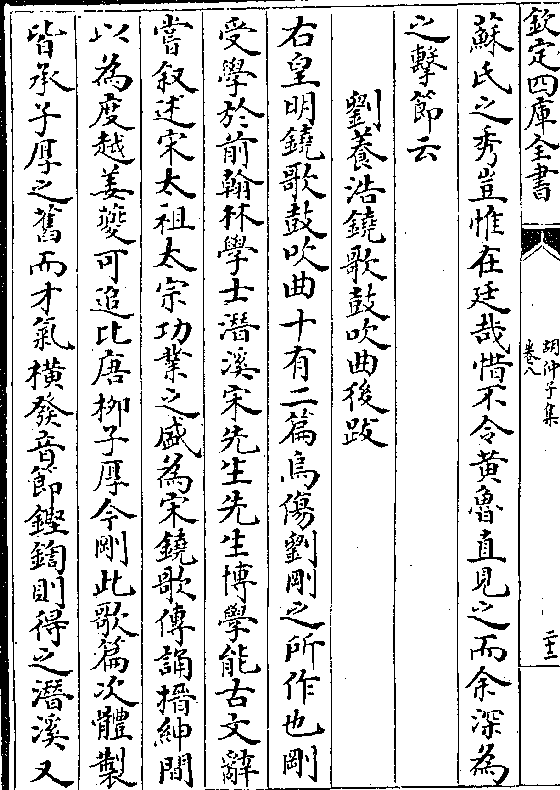 欽定四庫全書
胡仲子集
卷八
二十二
蘇氏之秀豈惟在廷哉惜不令黃魯直見之而余深為
之擊節云
劉養浩鐃歌鼓吹曲後跋
右皇明鐃歌鼓吹曲十有二篇烏傷劉剛之所作也剛
受學於前翰林學士潛溪宋先生先生博學能古文辭
嘗叙述宋太祖太宗功業之盛為宋鐃歌傳誦搢紳間
以為度越姜夔可追比唐柳子厚今剛此歌篇次體製
皆承子厚之舊而才氣橫發音節鏗鍧則得之潛溪又